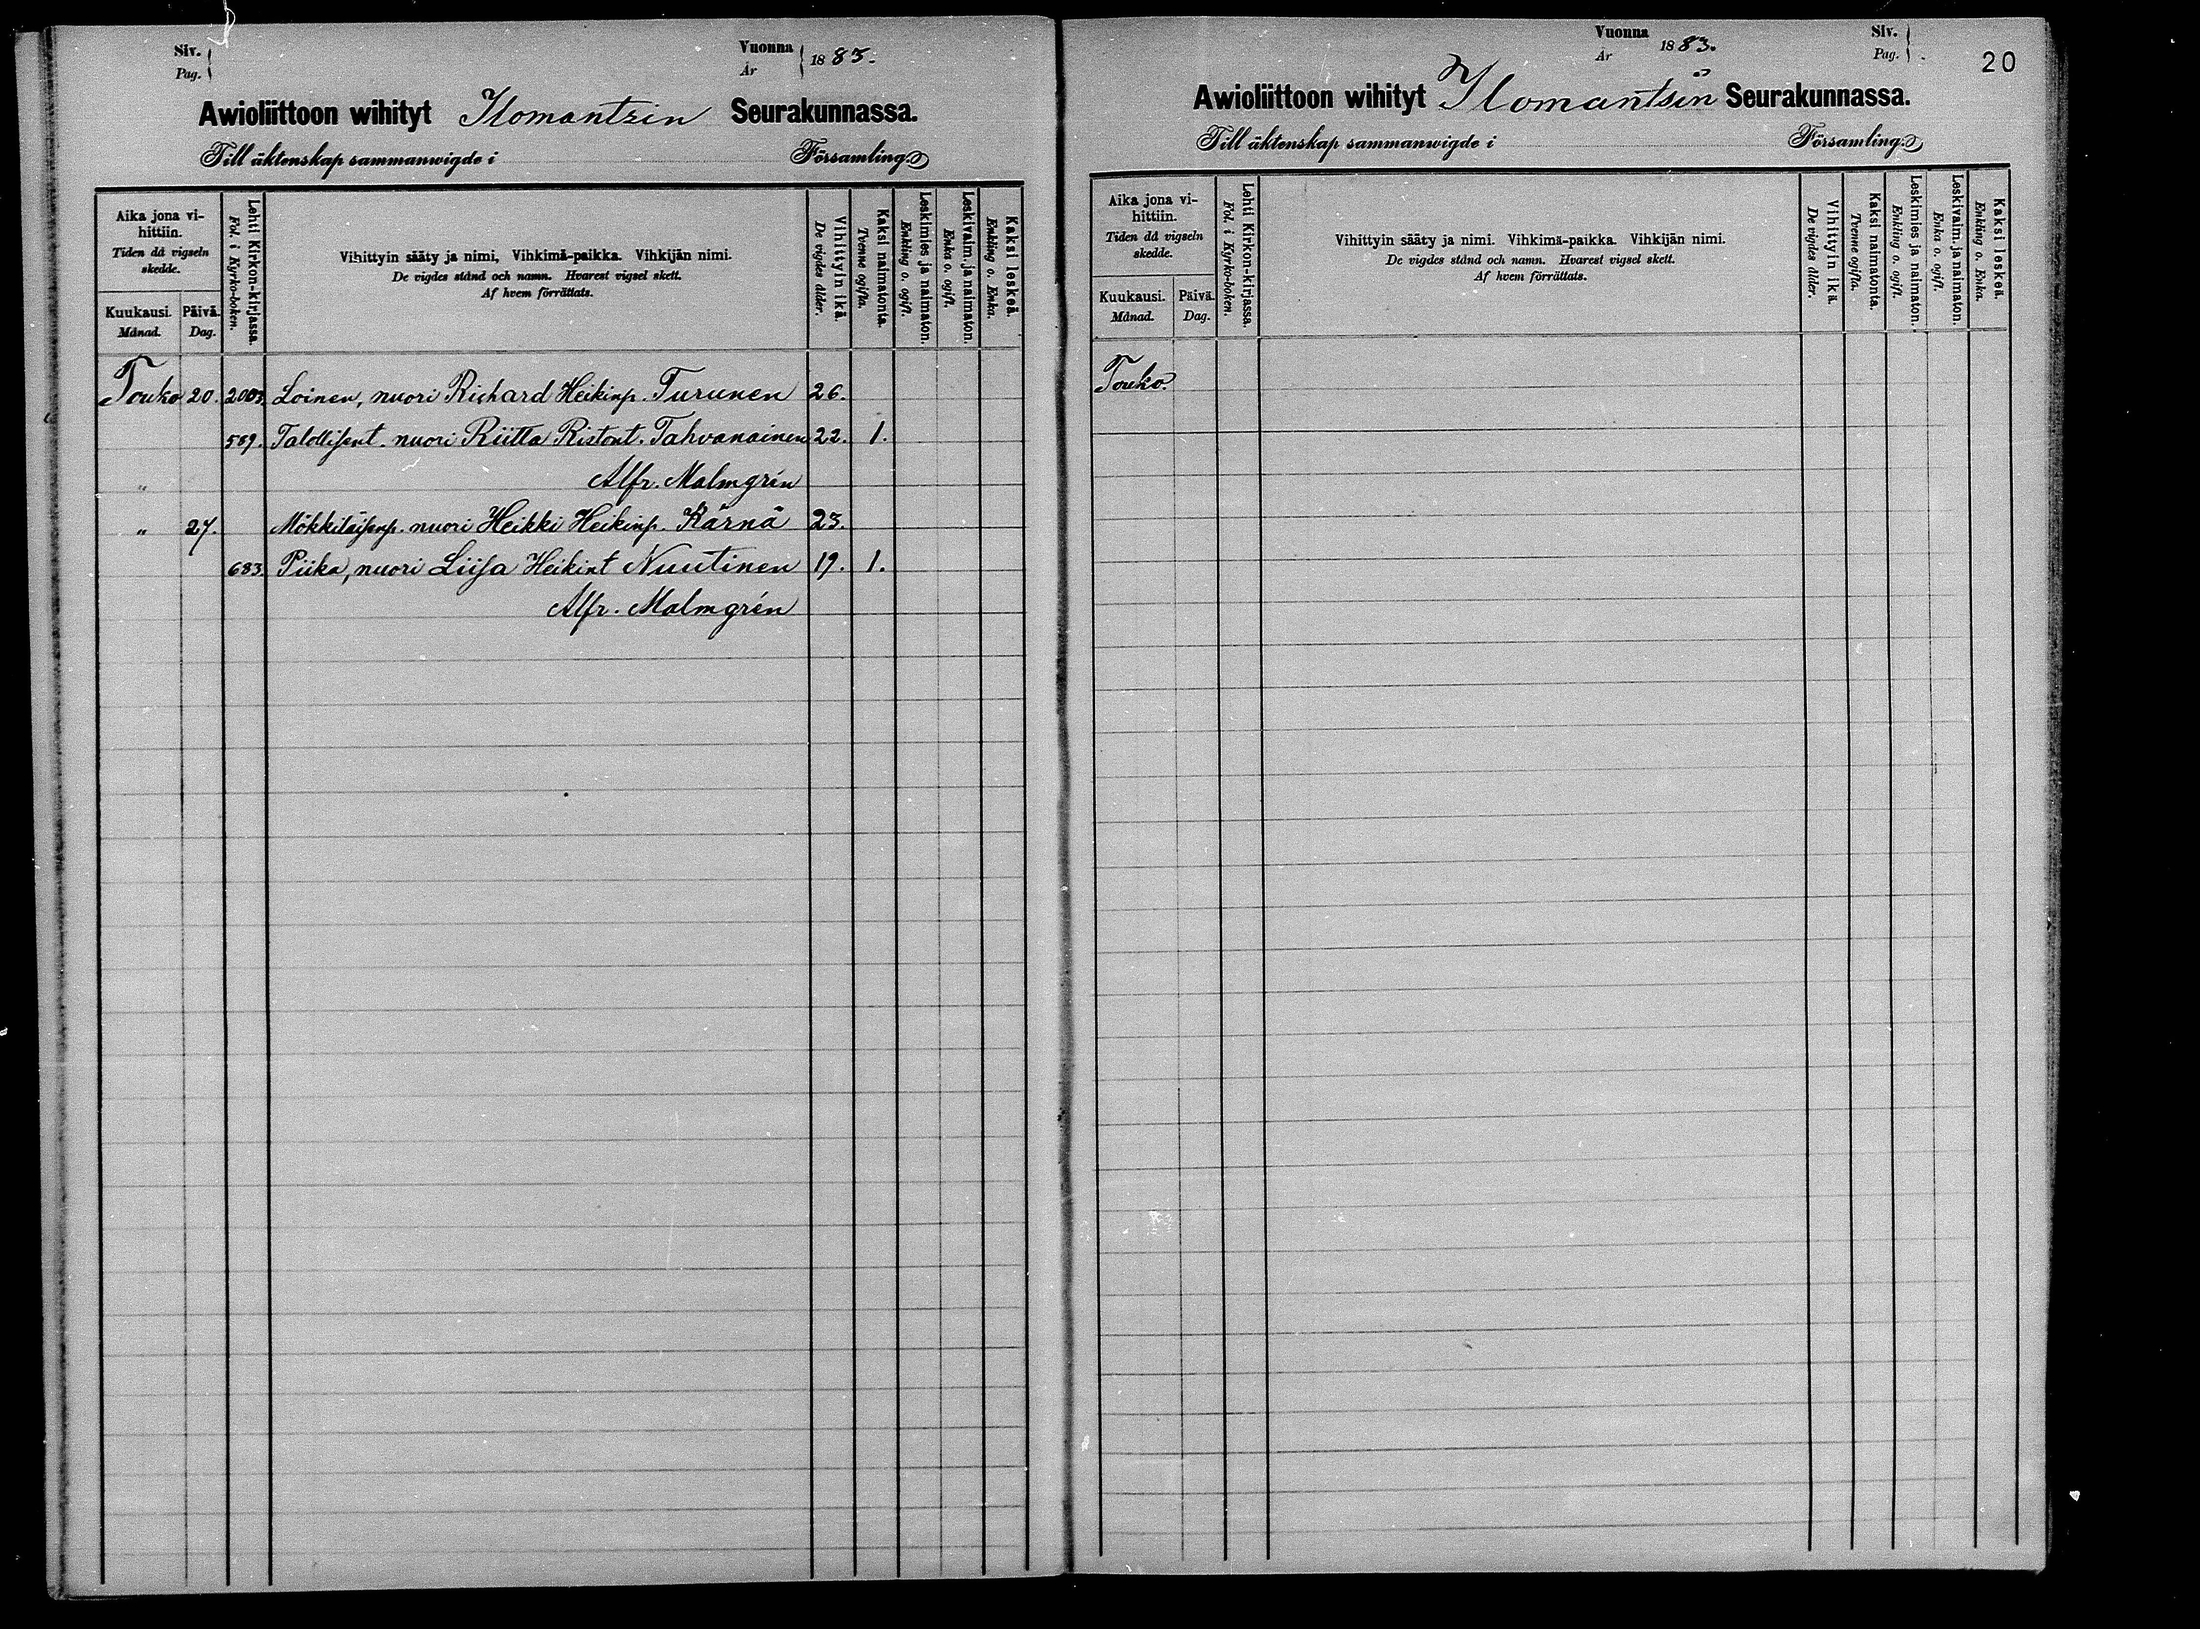 Siv.
Pag.
Vuonna
År
1883.
Awioliittoon wihityt Ilomantsin Seurakunnassa.
Till äktenskap sammanwigde i Församling.
Aika jona vi-
hittiin.
Tiden då vigseln
skedde.
Kuukausi.
Månad.
Päivä.
Dag.
Lehti Kirkon-kirjassa.
Fol. i Kyrko-boken.
Vihittyin sääty ja nimi, Vihkimä-paikka. Vihkijän nimi.
De vigdes stånd och namn. Hvarest vigsel skett.
Af hvem förrättats.
Vihittyin ikä.
De vigdes ålder.
Kaksi naimatonta.
Tvenne ogifta.
Leskimies ja naimaton.
Enkling o. ogift.
Leskivaim. ja naimaton.
Enka o. ogift.
Kaksi leskeä.
Enkling o. Enka.
Touko 20. 2003. Loinen, nuori Richard Heikinp. Turunen 26.
589. Talollisent. nuori Riitta Ristont. Tahvanainen 22. 1.
" Alfr. Malmgrén
" 27. Mökkiläisenp. nuori Heikki Heikinp. Kärnä 23.
683. Piika, nuori Liisa Heikint Nuutinen 19. 1.
Alfr. Malmgrén
Vuonna
År
1883.
Siv.
Pag.
20
Awioliittoon wihityt Ilomantsin Seurakunnassa.
Till äktenskap sammanwigde i Församling.
Aika jona vi-
hittiin.
Tiden då vigseln
skedde.
Kuukausi.
Månad.
Päivä.
Dag.
Lehti Kirkon-kirjassa.
Fol. i Kyrko-boken.
Vihittyin sääty ja nimi. Vihkimä-paikka. Vihkijän nimi.
De vigdes stånd och namn. Hvarest vigsel skett.
Af hvem förrättats.
Vihittyin ikä.
De vigdes ålder.
Kaksi naimatonta.
Tvenne ogifta.
Leskimies ja naimaton.
Enkling o. ogift.
Leskivaim. ja naimaton.
Enka o. ogift.
Kaksi leskeä.
Enkling o. Enka.
Touko.